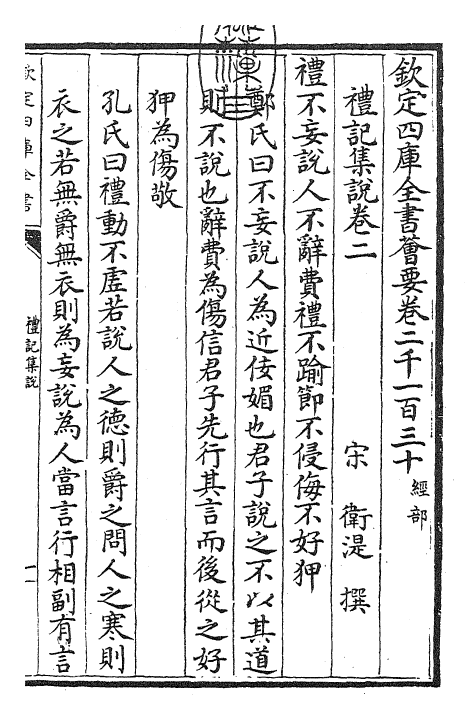 欽定四庫全書薈要卷二千一百三十經部
禮記集說卷二
宋 衛湜 撰
禮不妄說人不辭費禮不踰節不侵侮不好狎
鄭氏曰不妄說人為近佞媚也君子說之不以其道
則不說也辭費為傷信君子先行其言而後從之好
狎為傷敬
孔氏曰禮動不虛若說人之德則爵之問人之寒則
衣之若無爵無衣則為妄說為人當言行相副有言
欽定四庫全書
禮記集說